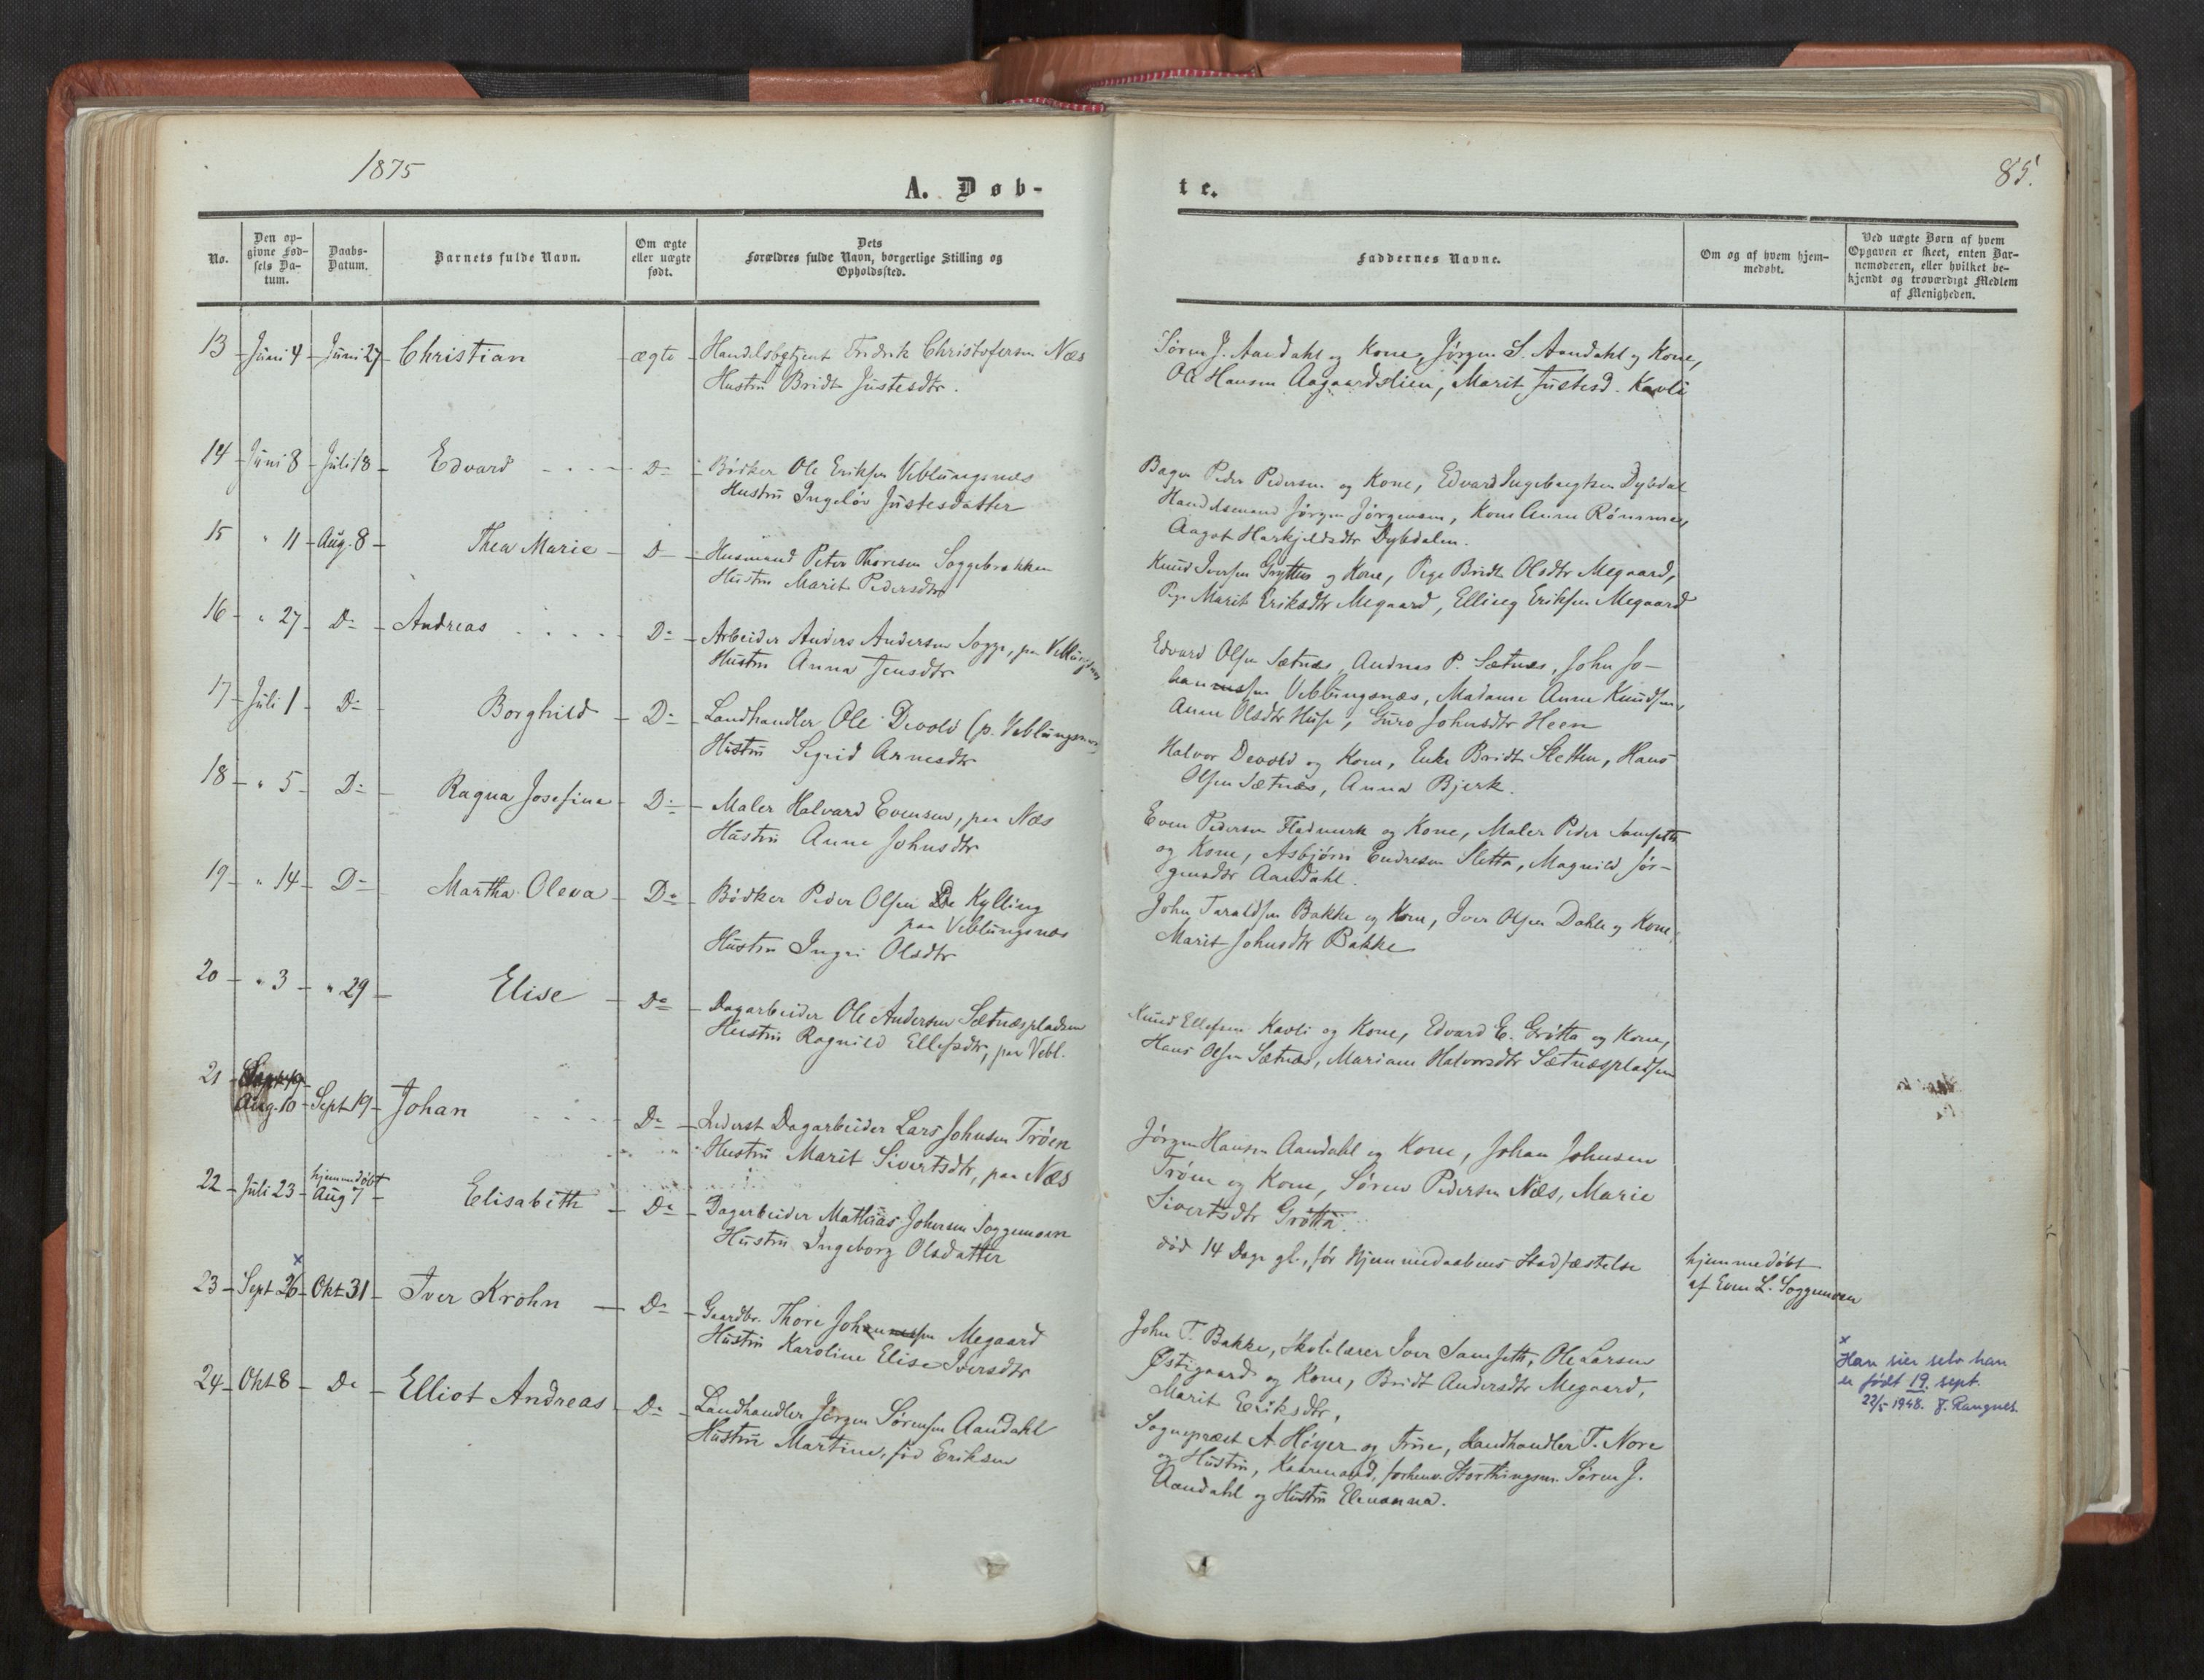 1875
A. Døb-
No.
Den op-
givne Fød-
sels Da-
tum.
Daabs-
Datum.
Barnets fulde Navn.
Om ægte
eller uægte
født.
Dets
Forældres fulde Navn, borgerlige Stilling og
Opholdssted.
13 - Juni 4 - Juni 27 - Christian - ægte - Handelsbetjent Fredrik Christofersen Næs
Hustru Bridt Justesdtr.
14 - Juni 8 - Juli 18 - Edvard - Do - Bødker Ole Eriksen Veblungsnæs
Hustru Ingeløv Justesdatter
15 " 11 - Aug. 8 - Thea Marie - Do - Husmand Peter Thoresen Soggebrakken
Hustru Marit Pedersdtr
16 - " 27 - Do - Andreas - Do - Arbeider Anders Andersen Sogge, paa Veblungsnæs
Hustru Anna Jensdtr
17 - Juli 1 - Do - Borghild - Do - Landhandler Ole Devold (p. Veblungsnæs)
Hustru Sigrid Arnesdtr
18 - " 5 - Do - Ragna Josefine - Do - Maler Halvard Evensen, paa Næs
Hustru Anne Johnsdtr
19 - " 14 - Do - Martha Oleva - Do - Bødker Peder Olsen Kylling
paa Veblungsnæs
Hustru Ingri Olsdtr
20 - " 3 - " 29 - Elise - Do - Dagarbeider Ole Andersen Sætnæspladsen
Hustru Ragnild Ellefsdtr, paa Vebl.
21 -
Aug. 10 - Sept 19 - Johan - Do - Inderst Dagarbeider Lars Johnsen Trøen
Hustru Marit Sivertsdtr, paa Næs
22 - Juli 23 - hjemmedøbt
Aug 7 - Elisabeth - Do - Dagarbeider Mathias Johnsen Soggemoen
Hustru Ingeborg Olsdatter
x
23 - Sept 26 - Okt 31 - Iver Krohn - Do - Gaardbr. Thore Johannessen Megaard
Hustru Karoline Elise Iversdtr
24 - Okt 8 - Do - Elliot Andreas - Do - Landhandler Jørgen Sørensen Aandahl
Hustru Martine, fød Eriksen
85.
te.
Faddernes Navne.
Om og af hvem hjem-
medøbt.
Ved uægte Børn af hvem
Opgaven er skeet, enten Bar-
nemoderen, eller hvilket be-
kjendt og troværdigt Medlem
af Menigheden.
Søren J. Aandahl og Kone, Jørgen S. Aandahl og Kone,
Ole Hansen Aagaardslien, Marit Justesd. Kavli
Bager Peder Pedersen og Kone, Edvard Ingebrigtsen Dybdal
Handelsmand Jørgen Jørgensen, Kone Anne
Aagot Harkjeldsdtr Dybdalen.
Knud Iversen Gryttens og Kone, Pige Bridt Olsdtr Megaard,
Pige Marit Eriksdtr Megaard, Elling Eriksen Megaard
Edvard Olsen Sætnæs, Andreas P. Sætnæs, John Jo-
hannessen Veblungsnæs, Madame Anne Knudsen,
Anne Olsdtr Huse, Guro Johnsdtr Heen
Halvor Devold og Kone, Enke Bridt Sletten, Hans
Olsen Sætnæs, Anna Bjerk.
Even Pedersen Fladmark og Kone, Maler Peder Samseth
og Kone, Asbjørn Endresen Sletta, Magnild Jør-
gensdtr Aandahl.
John Taraldsen Bakke og Kone, Iver Olsen Dahle og Kone,
Marit Johnsdtr Bakke
Knud Ellefsen Kavli og Kone, Edvard E. Grøtta og Kone,
Hans Olsen Sætnæs, Mariane Halvorsdtr Sætnæspladsen
Jørgen Hansen Aandahl og Kone, Johan Johnsen
Trøen og Kone, Søren Pedersen Næs, Marie
Sivertsdtr Grøtta.
død 14 Dage gl., før Hjemmedaabens Stadfæstelse
hjemmedøbt
af Even L. Soggemoen
John T. Bakke, Skolelærer Iver Samseth, Ole Larsen
Østigaard og Kone, Bridt Andersdtr Megaard,
Marit Eriksdtr,
x
Han sier selv han
er født 19. sept.
22/5 1948. F. Rangnes
Sogneprest A. Høyer og Frue, Landhandler T. Nore
og Hustru, Kaarmand, forhenv. Storthingsm. Søren J.
Aandahl og Hustru Elenanna.